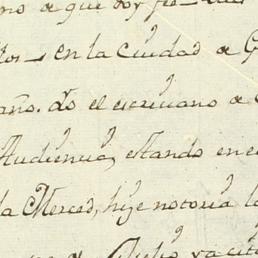 no de que doy fe
en la ciudad de G
año. Yo el escrivano de
Audiencia, estando en e
la Merced, hise notoria l
dicho